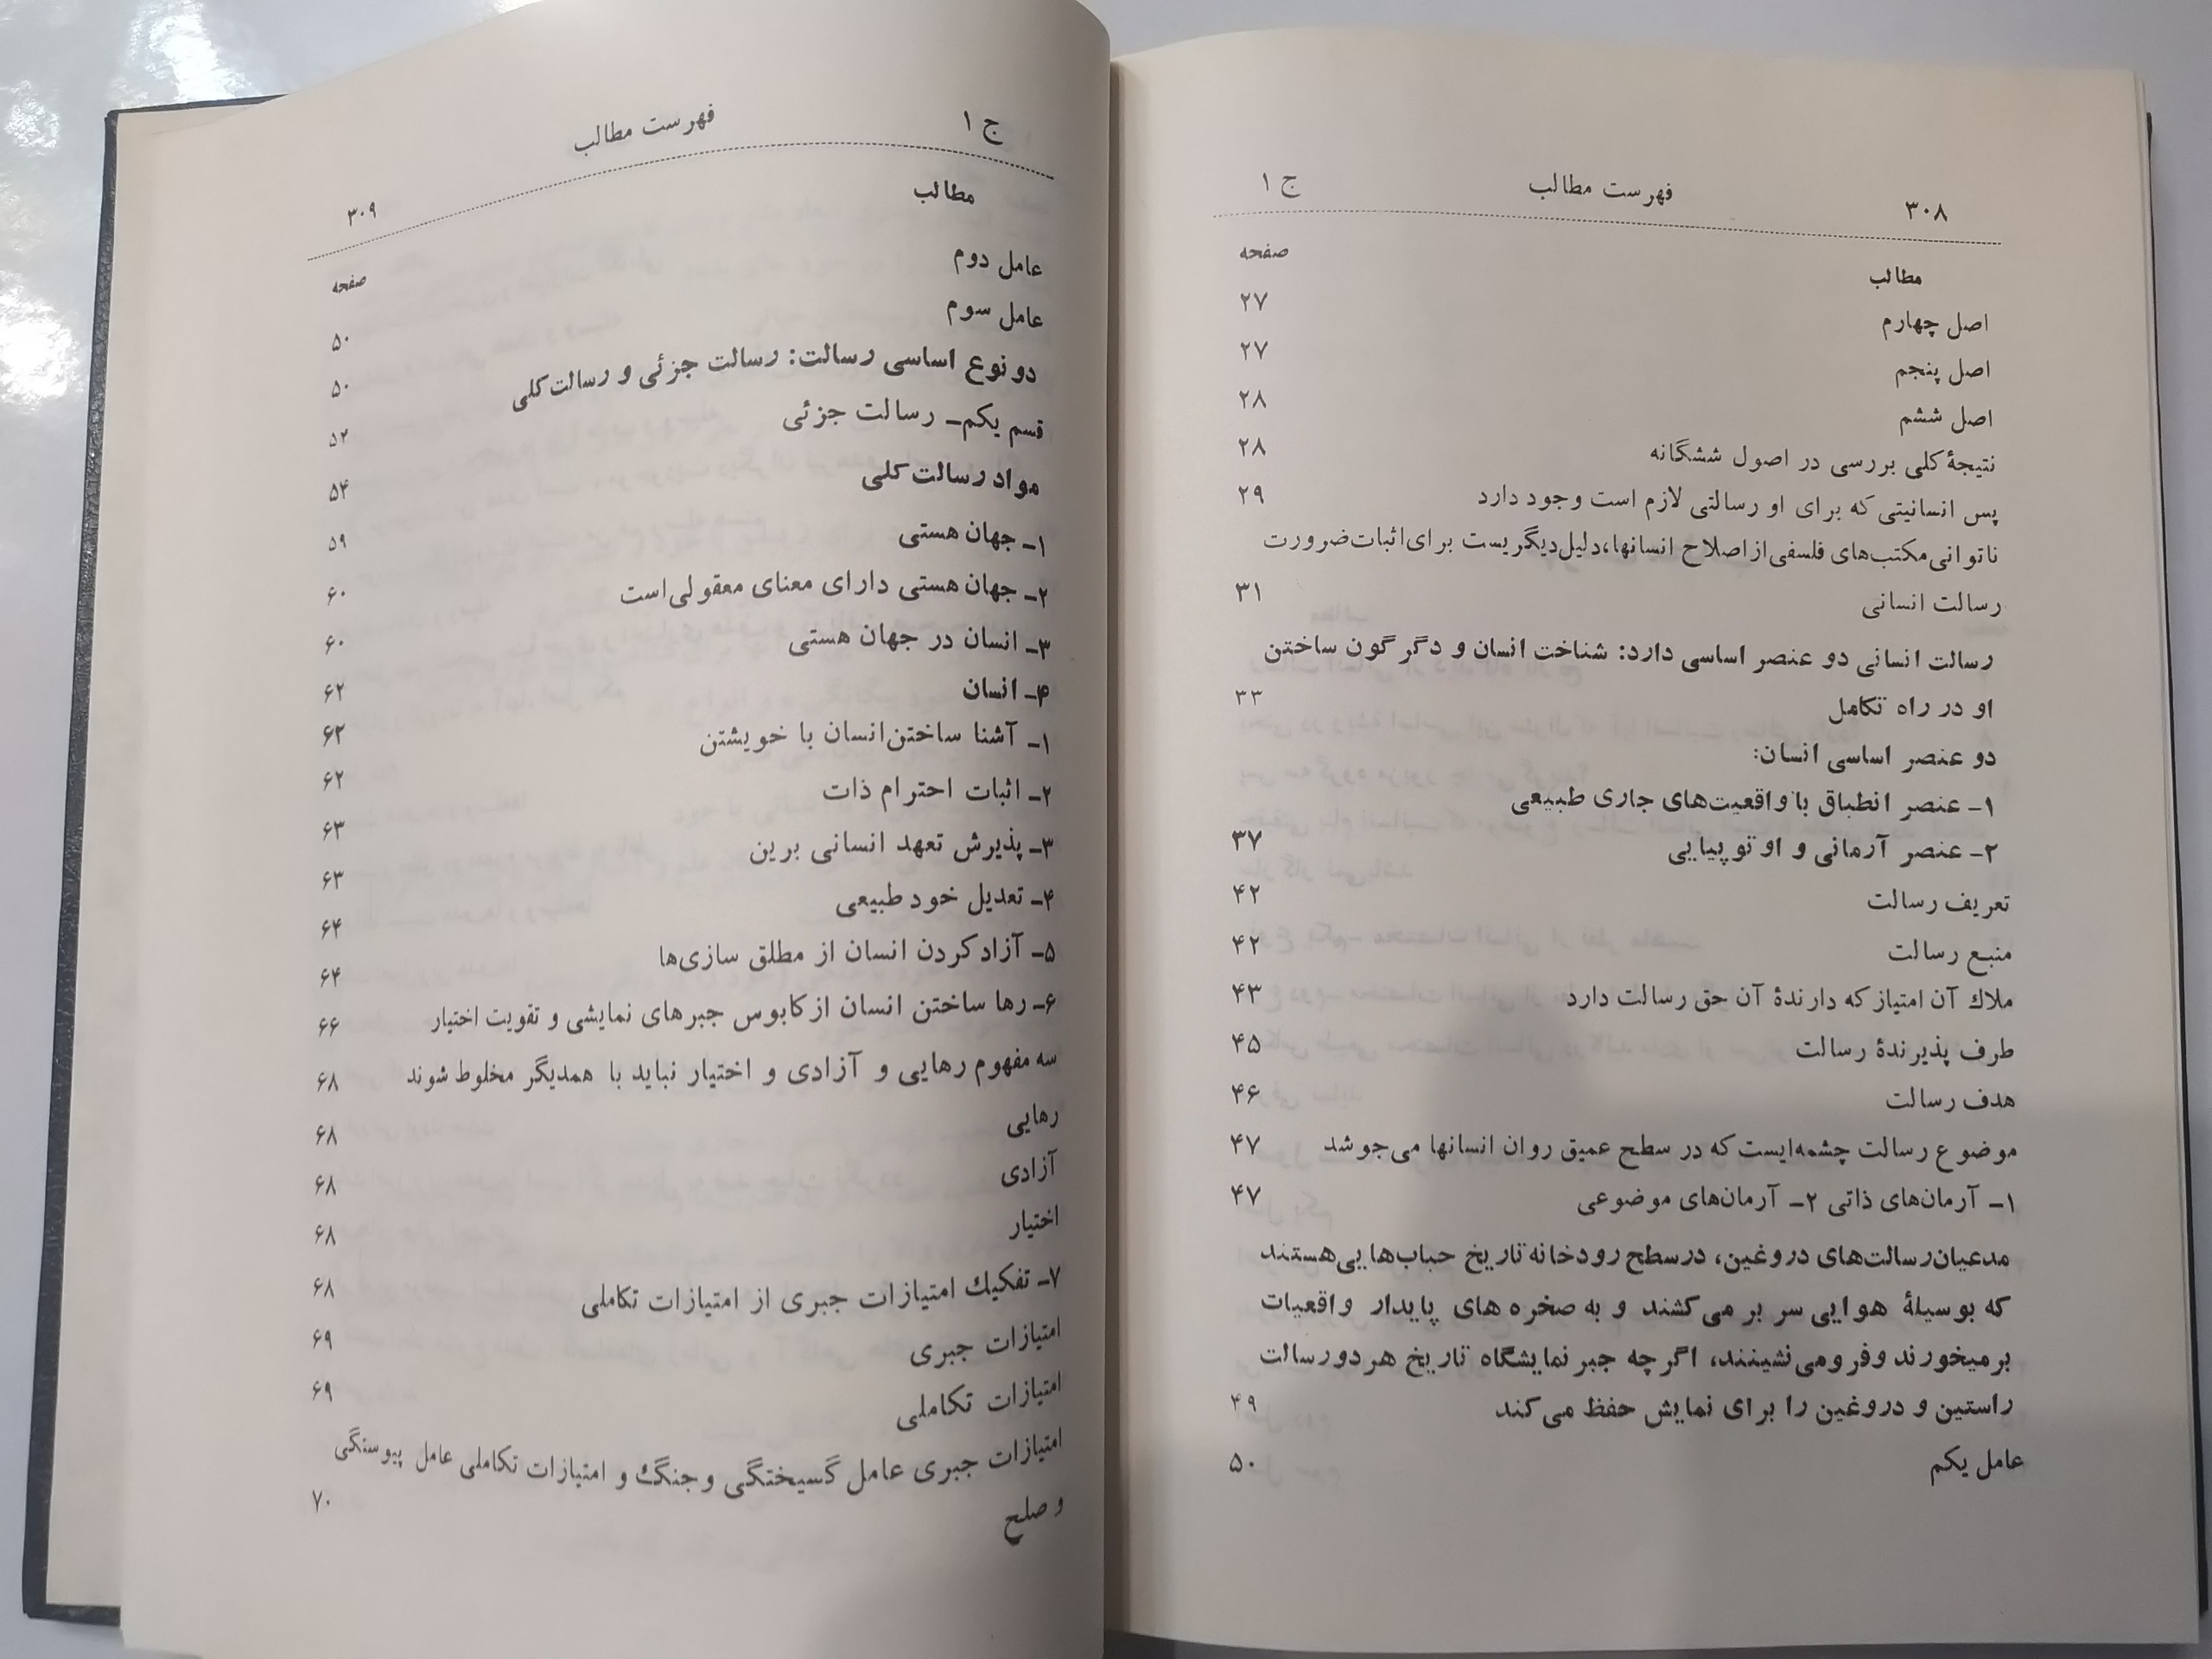 ۳۰۸ فهرست مطالب ج ۱
مطالب صفحه
اصل چهارم ۲۷
اصل پنجم ۲۷
اصل ششم ۲۸
نتیجهٔ کلی بررسی در اصول ششگانه ۲۸
پس انسانیتی که برای او رسالتی لازم است وجود دارد ۲۹
ناتوانی مکتب‌های فلسفی از اصلاح انسانها، دلیل دیگریست برای اثبات ضرورت
رسالت انسانی ۳۱
رسالت انسانی دو عنصر اساسی دارد: شناخت انسان و دگرگون ساختن
او در راه تکامل ۳۳
دو عنصر اساسی انسان:
۱- عنصر انطباق با واقعیت‌های جاری طبیعی
۲- عنصر آرمانی و اوتوپیایی ۳۷
تعریف رسالت ۴۲
منبع رسالت ۴۲
ملاك آن امتیاز که دارندهٔ آن حق رسالت دارد ۴۳
طرف پذیرندهٔ رسالت ۴۵
هدف رسالت ۴۶
موضوع رسالت چشمه‌ایست که در سطح عمیق روان انسانها می‌جوشد ۴۷
۱- آرمان‌های ذاتی ۲- آرمان‌های موضوعی ۴۷
مدعیان رسالت‌های دروغین، درسطح رودخانه تاریخ حباب‌هایی هستند
که بوسیلهٔ هوایی سر بر می‌کشند و به صخره های پایدار واقعیات
برمیخورند و فرومی‌نشینند، اگرچه جبر نمایشگاه تاریخ هر دو رسالت
راستین و دروغین را برای نمایش حفظ می‌کند ۴۹
عامل یکم ۵۰
ج ۱ فهرست مطالب ۳۰۹
مطالب صفحه
عامل دوم ۵۰
عامل سوم ۵۰
دو نوع اساسی رسالت: رسالت جزئی و رسالت کلی ۵۲
قسم یکم- رسالت جزئی ۵۴
مواد رسالت کلی ۵۹
۱- جهان هستی ۶۰
۲- جهان هستی دارای معنای معقولی است ۶۰
۳- انسان در جهان هستی ۶۲
۴- انسان ۶۲
۱- آشنا ساختن انسان با خویشتن ۶۲
۲- اثبات احترام ذات ۶۳
۳- پذیرش تعهد انسانی برین ۶۳
۴- تعدیل خود طبیعی ۶۴
۵- آزاد کردن انسان از مطلق سازی‌ها ۶۴
۶- رها ساختن انسان از کابوس جبرهای نمایشی و تقویت اختیار ۶۶
سه مفهوم رهایی و آزادی و اختیار نباید با همدیگر مخلوط شوند ۶۸
رهایی ۶۸
آزادی ۶۸
اختیار ۶۸
۷- تفکیك امتیازات جبری از امتیازات تکاملی ۶۸
امتیازات جبری ۶۹
امتیازات تکاملی ۶۹
امتیازات جبری عامل گسیختگی و جنگ و امتیازات تکاملی عامل پیوستگی
و صلح ۷۰